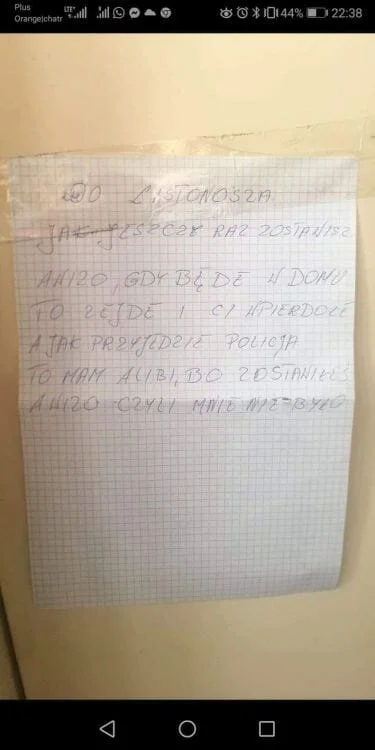 Plus
Orange|chatr
LTE
44% 22:38
DO LISTONOSZA
JAK JESZCZE RAZ ZOSTAWISZ
AWIZO, GDY BĘDĘ W DOMU
TO ZEJDĘ I CI WPIERDOLE
A JAK PRZYJEDZIE POLICJA
TO MAM ALIBI, BO ZOSTAWIŁEŚ
AWIZO CZYLI MNIE NIE BYŁO